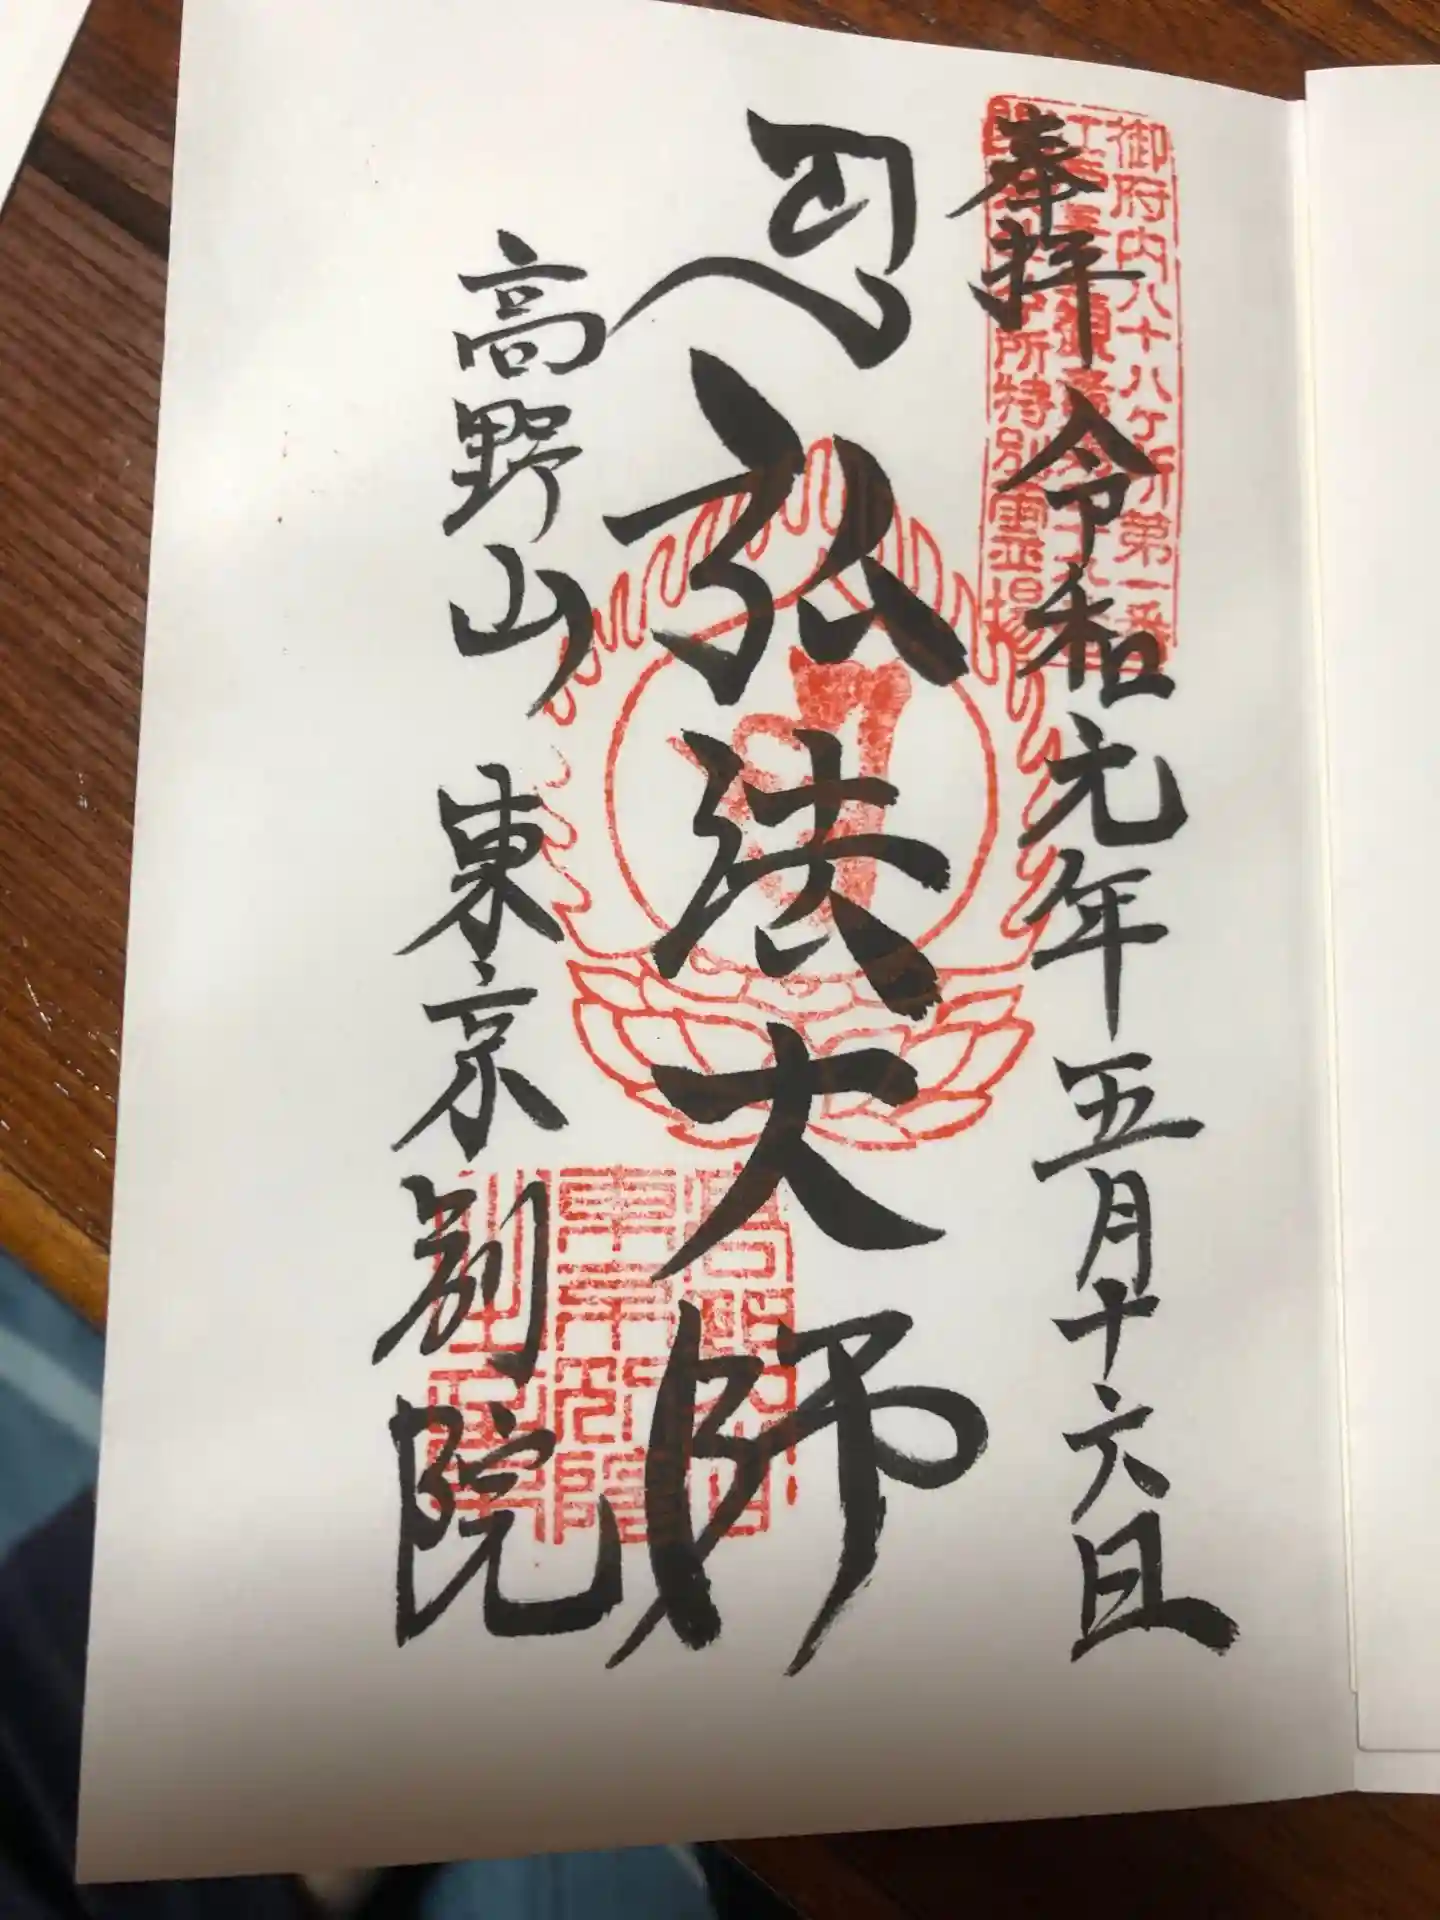 奉拝 令和元年五月十六日
弘法大師
高野山 東京別院
御府内八十八ヶ所第一番
所特別霊場